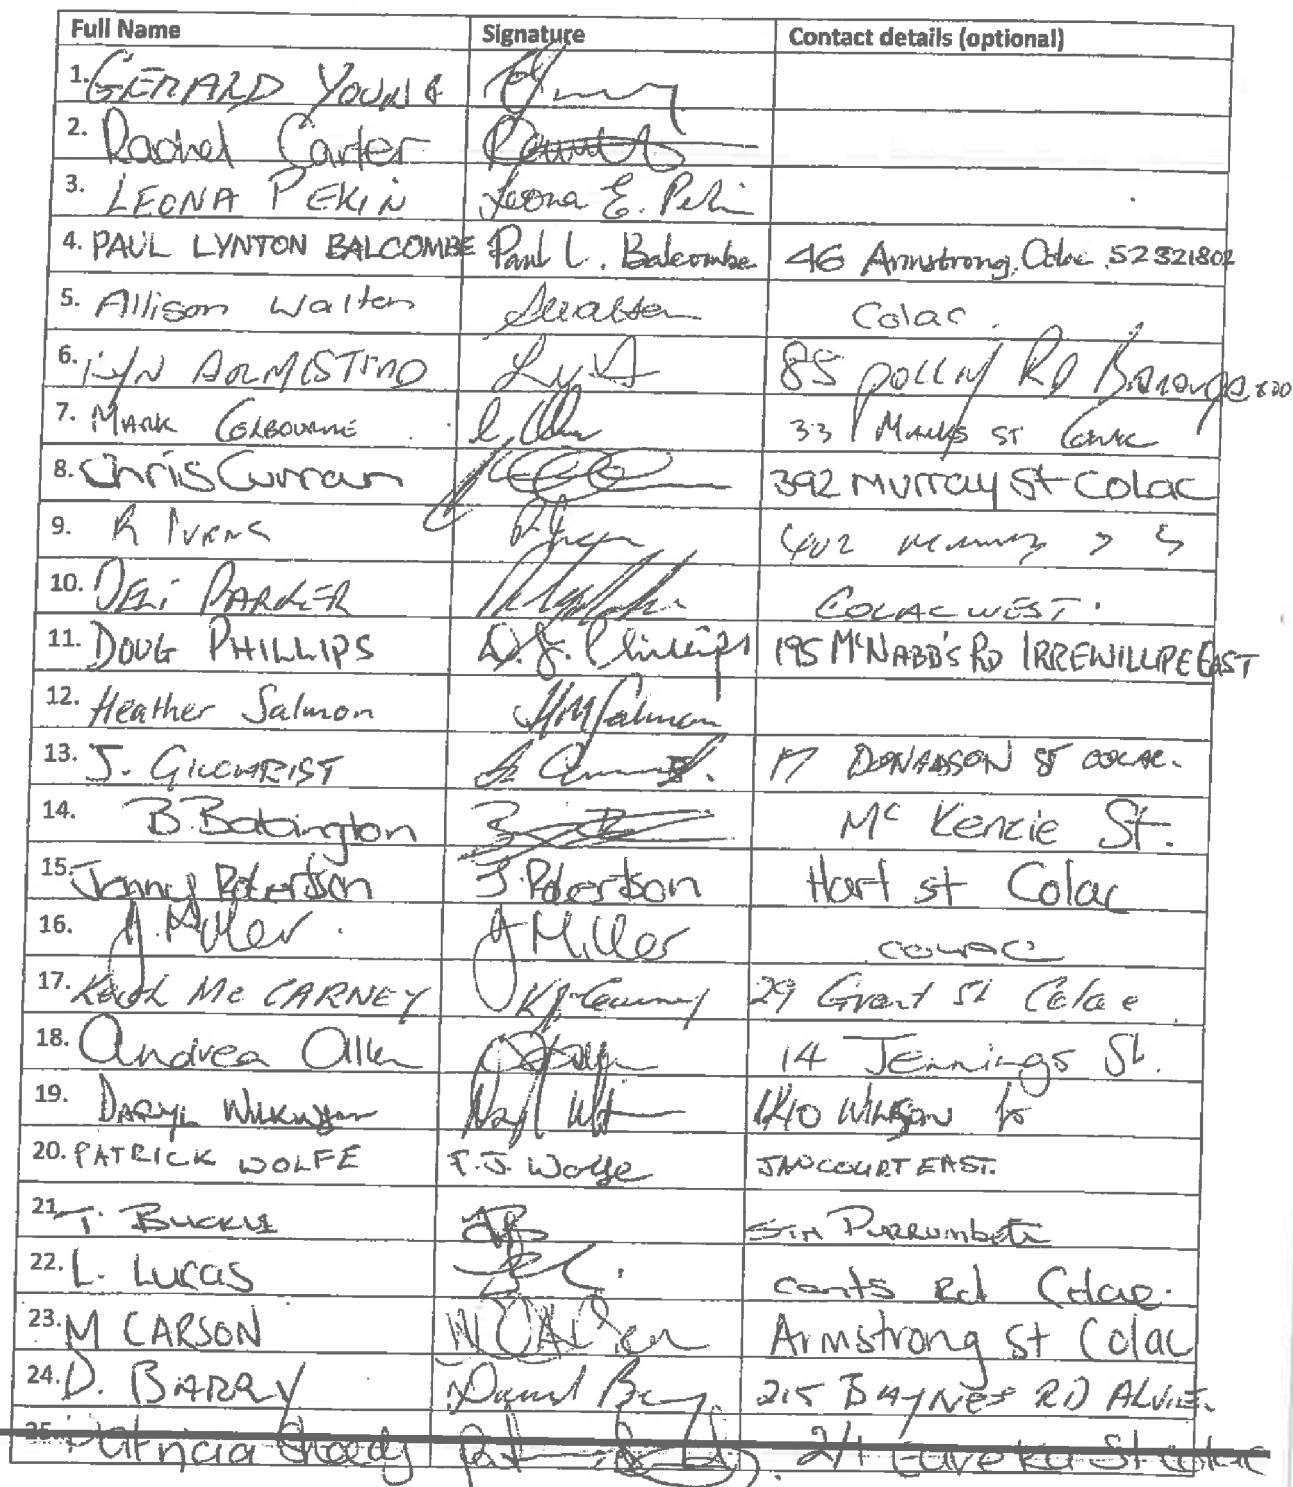 Full Name Signature Contact details (optional)
1. GERARD YOUNG
2. Rachel Carter
3. LEONA PEKIN Leona E. Pekin
4. PAUL LYNTON BALCOMBE Paul L. Balcombe 46 Armstrong, Colac 52321802
5. Allison Walter Colac.
6. LYN Lyn 85 Rd
7. MARK 33 St Colac
8. Chris Curran 392 Murray St Colac
9. R 402
10. PARKER COLAC WEST.
11. DOUG PHILLIPS D.J. Phillips 195 McNABB'S RD IRREWILLIPE EAST
12. Heather Salmon HM Salmon
13. J. GILCHRIST 17 DONALDSON ST COLAC.
14. B. Babington McKenzie St.
15. Jenny Robertson J. Robertson Hart st Colac
16. J. Miller. J Miller COLAC
17. Keith Mc CARNEY 29 Grant St Colac
18. Andrea Allen 14 Jennings St.
19. DARYL
20. PATRICK WOLFE P.J. Wolfe JANCOURT EAST.
21. T. BUCKLE Purrumbete
22. L. Lucas cants Rd Colac.
23. M CARSON Armstrong st Colac
24. D. BARRY 215 BAYNES RD ALVIE.
25. Patricia 2/1 Eureka St Colac